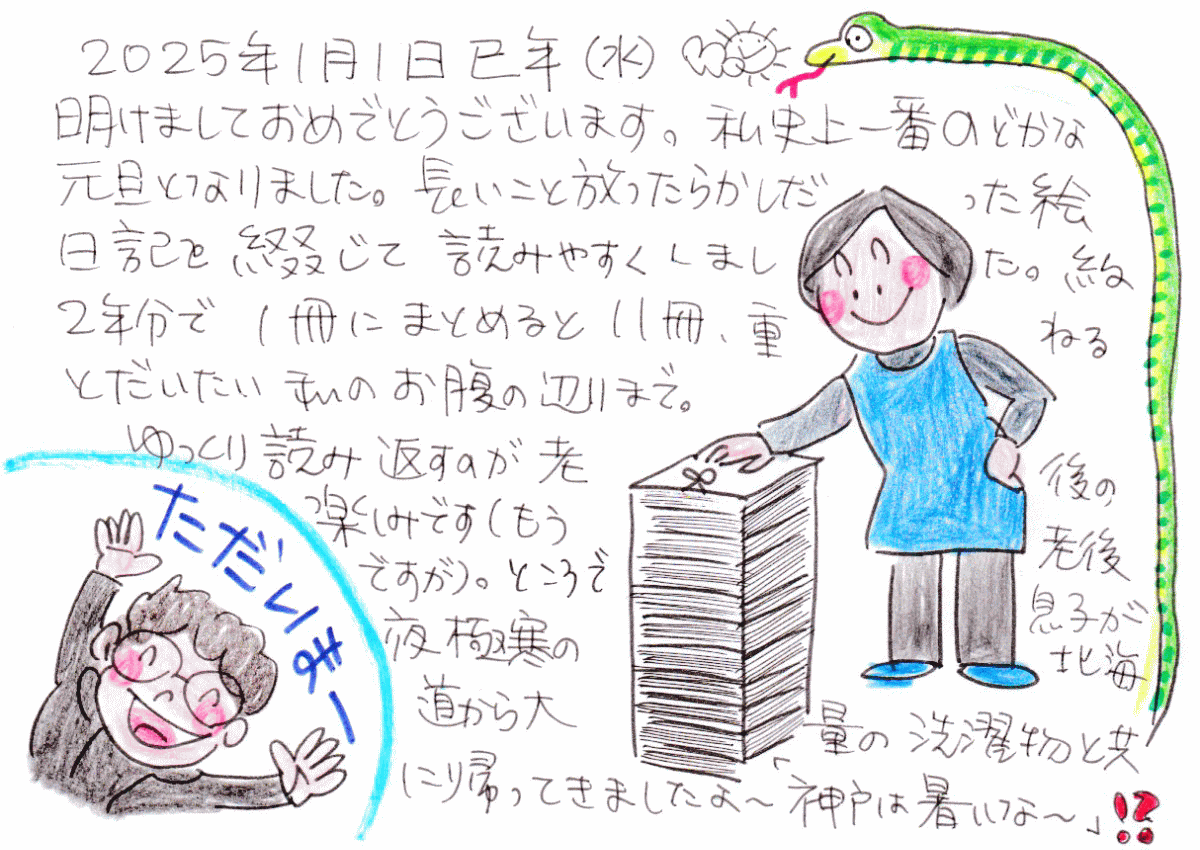 2025年1月1日巳年(水)
明けましておめでとうございます。私史上一番のどかな
元旦となりました。長いこと放ったらかしだった絵
日記を綴じて読みやすくしました。約
2年分で1冊にまとめると11冊、重ねる
とだいたい私のお腹の辺りまで。
ゆっくり読み返すのが老後の
楽しみです(もう老後
ですが)。ところで息子が
夜極寒の北海
道から大量の洗濯物と共
にり帰ってきましたよ〜「神戸は暑いな〜」!?
ただいまー